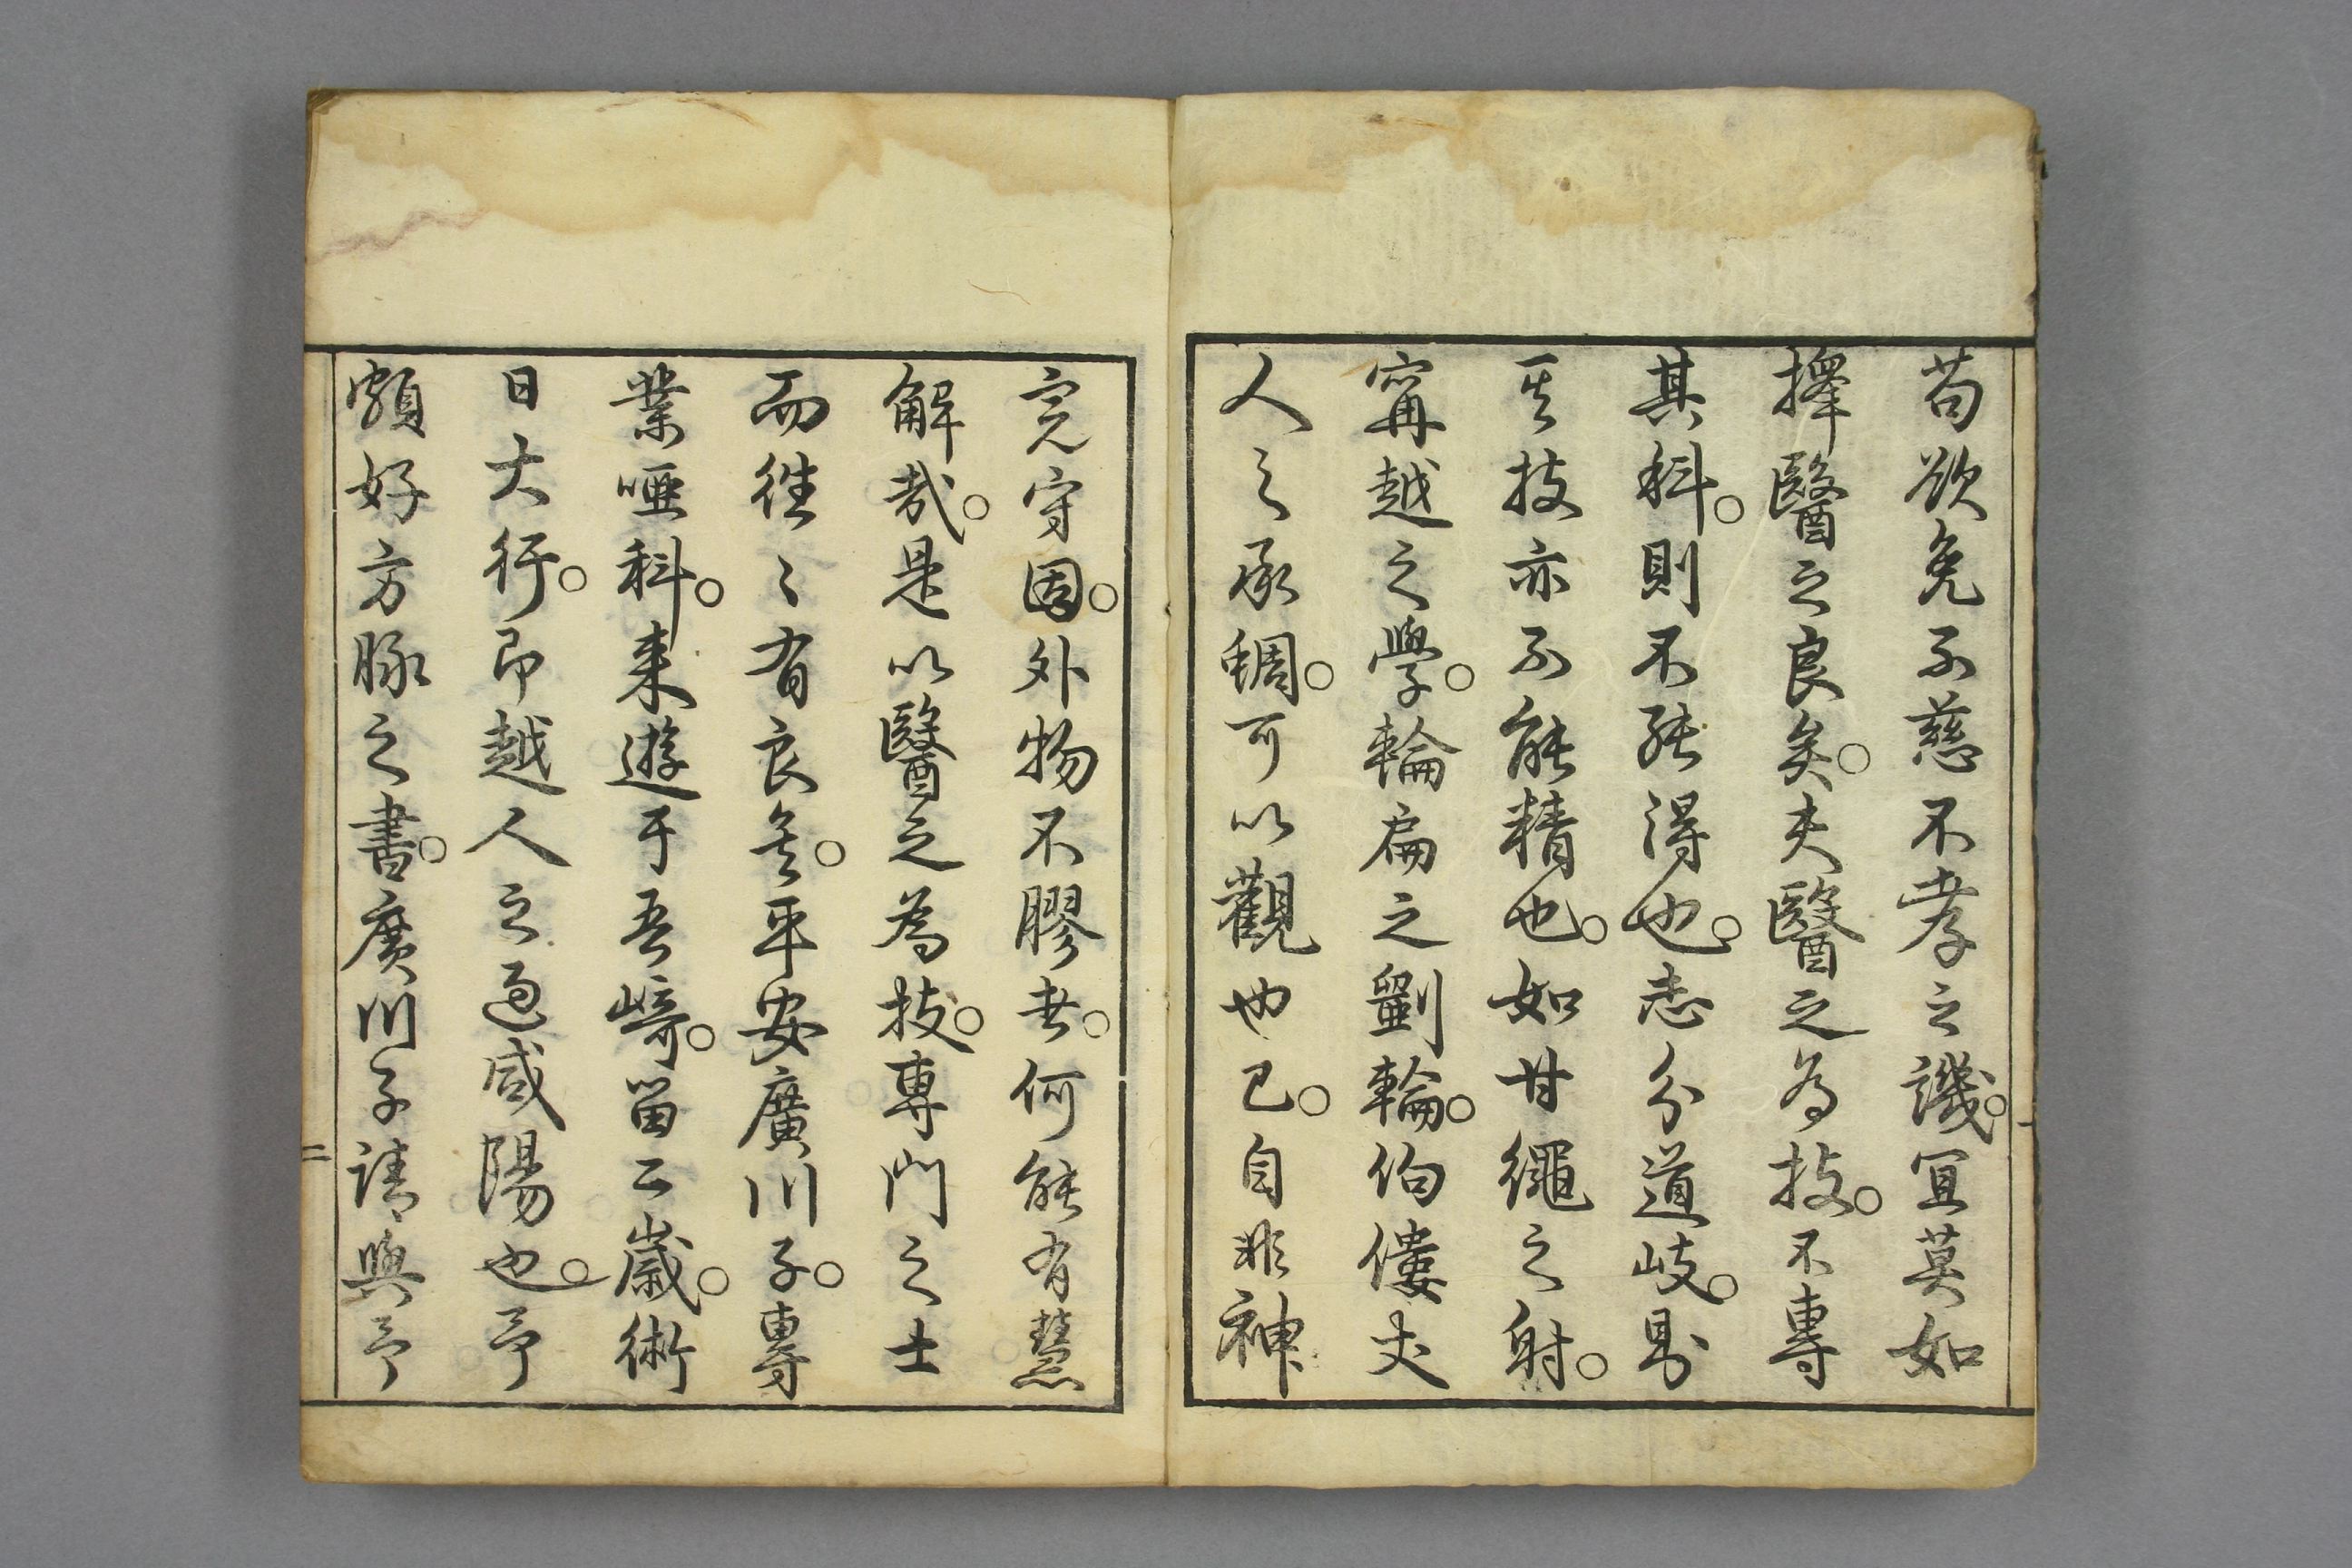 苟欲免不慈不孝之譏。宜莫如
擇醫之良矣。夫醫之為技。不專
其科。則不能得也。志分道岐。則
其技亦不能精也。如甘繩之射。
甯越之學。輪扁之劉輪。佝僂丈
人之承蜩。可以觀也已。自非神
完守固。外物不膠者。何能有慧
解哉。是以醫之為技。專門之士
而往〻有良矣。平安廣川子。專
業啞科。来遊于吾崎。留二歲。術
日大行。即越人之過咸陽也。予
頗好方脉之書。廣川子請與予
二